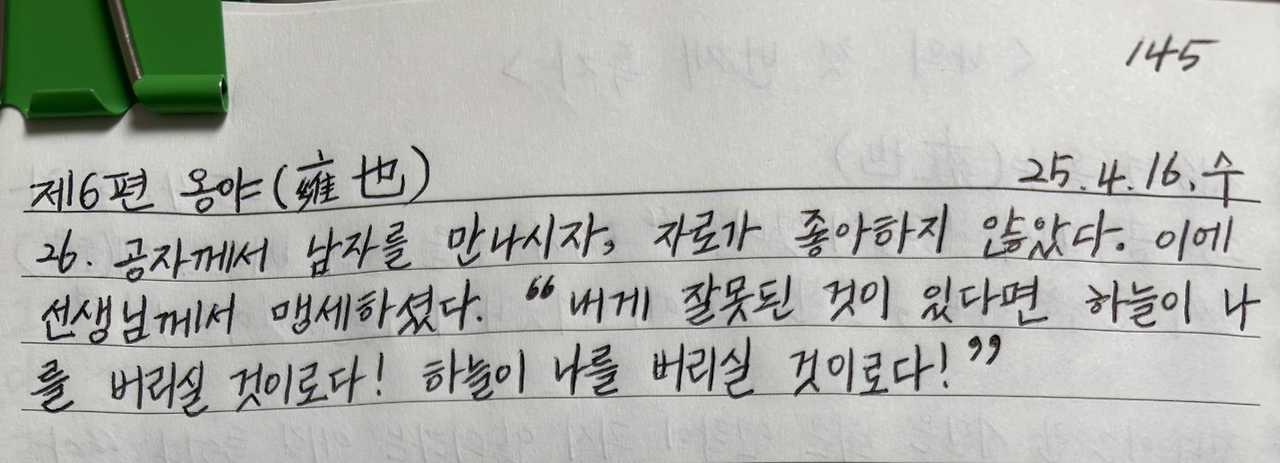 145
제6편 옹야(雍也) 25.4.16.수
26. 공자께서 남자를 만나시자, 자로가 좋아하지 않았다. 이에
선생님께서 맹세하셨다. "내게 잘못된 것이 있다면 하늘이 나
를 버리실 것이로다! 하늘이 나를 버리실 것이로다!"